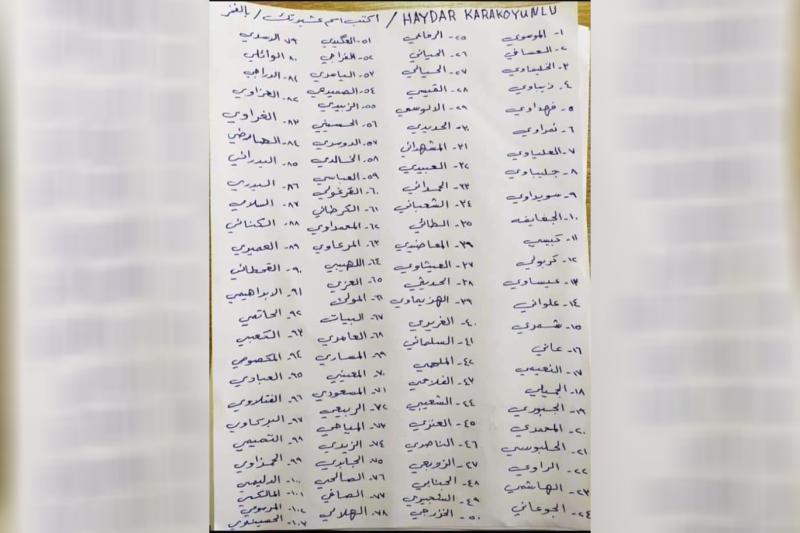 HAYDAR KARAKOYUNLU / اكتب اسم عشيرتك / بالغز
١- الموسوي
٢- العسافي
٣- الخليفاوي
٤- ذيباوي
٥- فهداوي
٦- نمراوي
٧- العلياوي
٨- جليباوي
٩- سويداوي
١٠- الجغايفه
١١- كبيسي
١٢- كربولي
١٣- عيساوي
١٤- علواني
١٥- شمري
١٦- عاني
١٧- النعيمي
١٨- الجميلي
١٩- الجبوري
٢٠- المحمدي
٢١- الحلبوسي
٢٢- الراوي
٢٣- الهاشمي
٢٤- الجوعاني
٢٥- الرفاعي
٢٦- الحياني
٢٧- الحسياني
٢٨- القيسي
٢٩- الالوسي
٣٠- الحديدي
٣١- المشهداني
٣٢- العبيدي
٣٣- الحمداني
٣٤- الشعباني
٣٥- الطائي
٣٦- المعاضيدي
٣٧- العيثاوي
٣٨- الحديثي
٣٩- الهزيماوي
٤٠- الغريري
٤١- السلماني
٤٢- الملحمي
٤٣- الفلاحي
٤٤- الشعيبي
٤٥- العنزي
٤٦- الناصري
٤٧- الزوبعي
٤٨- الجنابي
٤٩- الشجيري
٥٠- الخزرجي
٥١- العكيدي
٥٢- الفراجي
٥٣- اليامدي
٥٤- الصميدعي
٥٥- الزبيدي
٥٦- الحسيني
٥٧- الدوسري
٥٨- الخالدي
٥٩- العباسي
٦٠- القرغولي
٦١- الكرطاني
٦٢- المحمداوي
٦٣- المرعاوي
٦٤- اللهيبي
٦٥- العزي
٦٦- المولى
٦٧- البيات
٦٨- العامري
٦٩- المساري
٧٠- المعيني
٧١- المسعودي
٧٢- الربيعي
٧٣- المياحي
٧٤- الزيدي
٧٥- الجابري
٧٦- الصالحي
٧٧- الصافي
٧٨- الهلالي
٧٩- الاسدي
٨٠- الوائلي
٨١- الدراجي
٨٢- العزاوي
٨٣- الغراوي
٨٤-
٨٥- البدراني
٨٦- البدري
٨٧- السلامي
٨٨- الكناني
٨٩- العميري
٩٠- القحطاني
٩١- الابراهيمي
٩٢- الحاتمي
٩٣- الكعبي
٩٤- المكصوصي
٩٥- العبادي
٩٦- الفتلاوي
٩٧- البركاوي
٩٨- التميمي
٩٩- الحمزاوي
١٠٠- الدليمي
١٠١- المالكي
١٠٢-
١٠٣- الحسيناوي